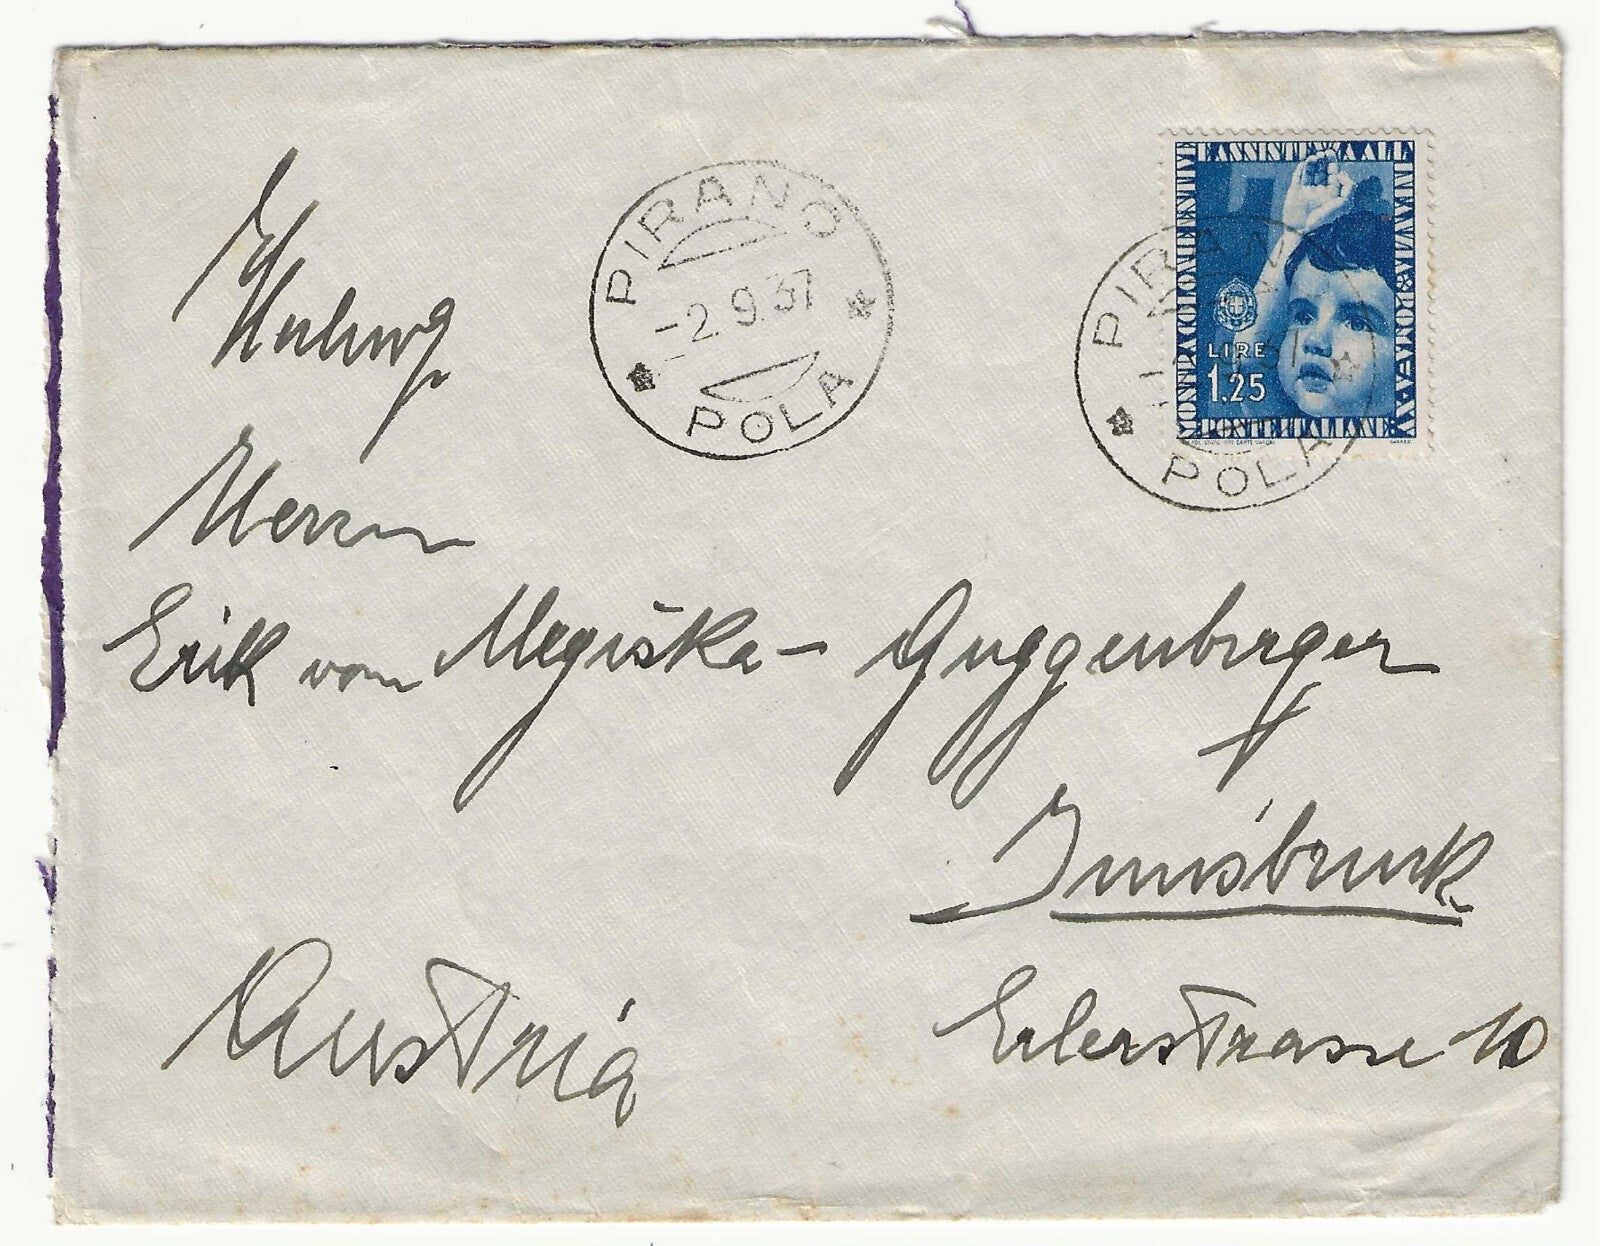 PIRANO
-2.9.37
POLA
MOSTRA COLONIE ESTIVE E ASSISTENZA ALL'INFANZIA ROMA A.XV
LIRE
1.25
POSTE ITALIANE
PIRANO
POLA
Herrn
Erik von Megiška - Guggenberger
Innsbruck
Austria
Erlerstrasse 10